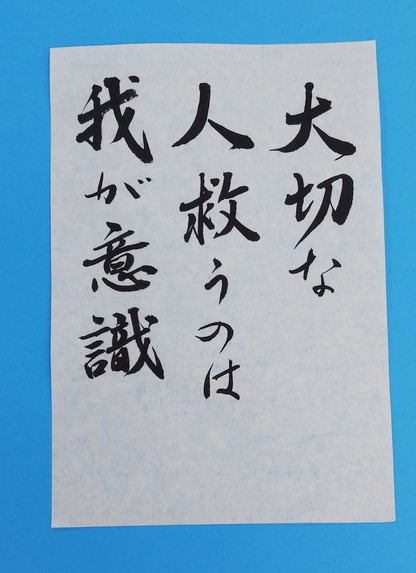 大切な
人救うのは
我が意識